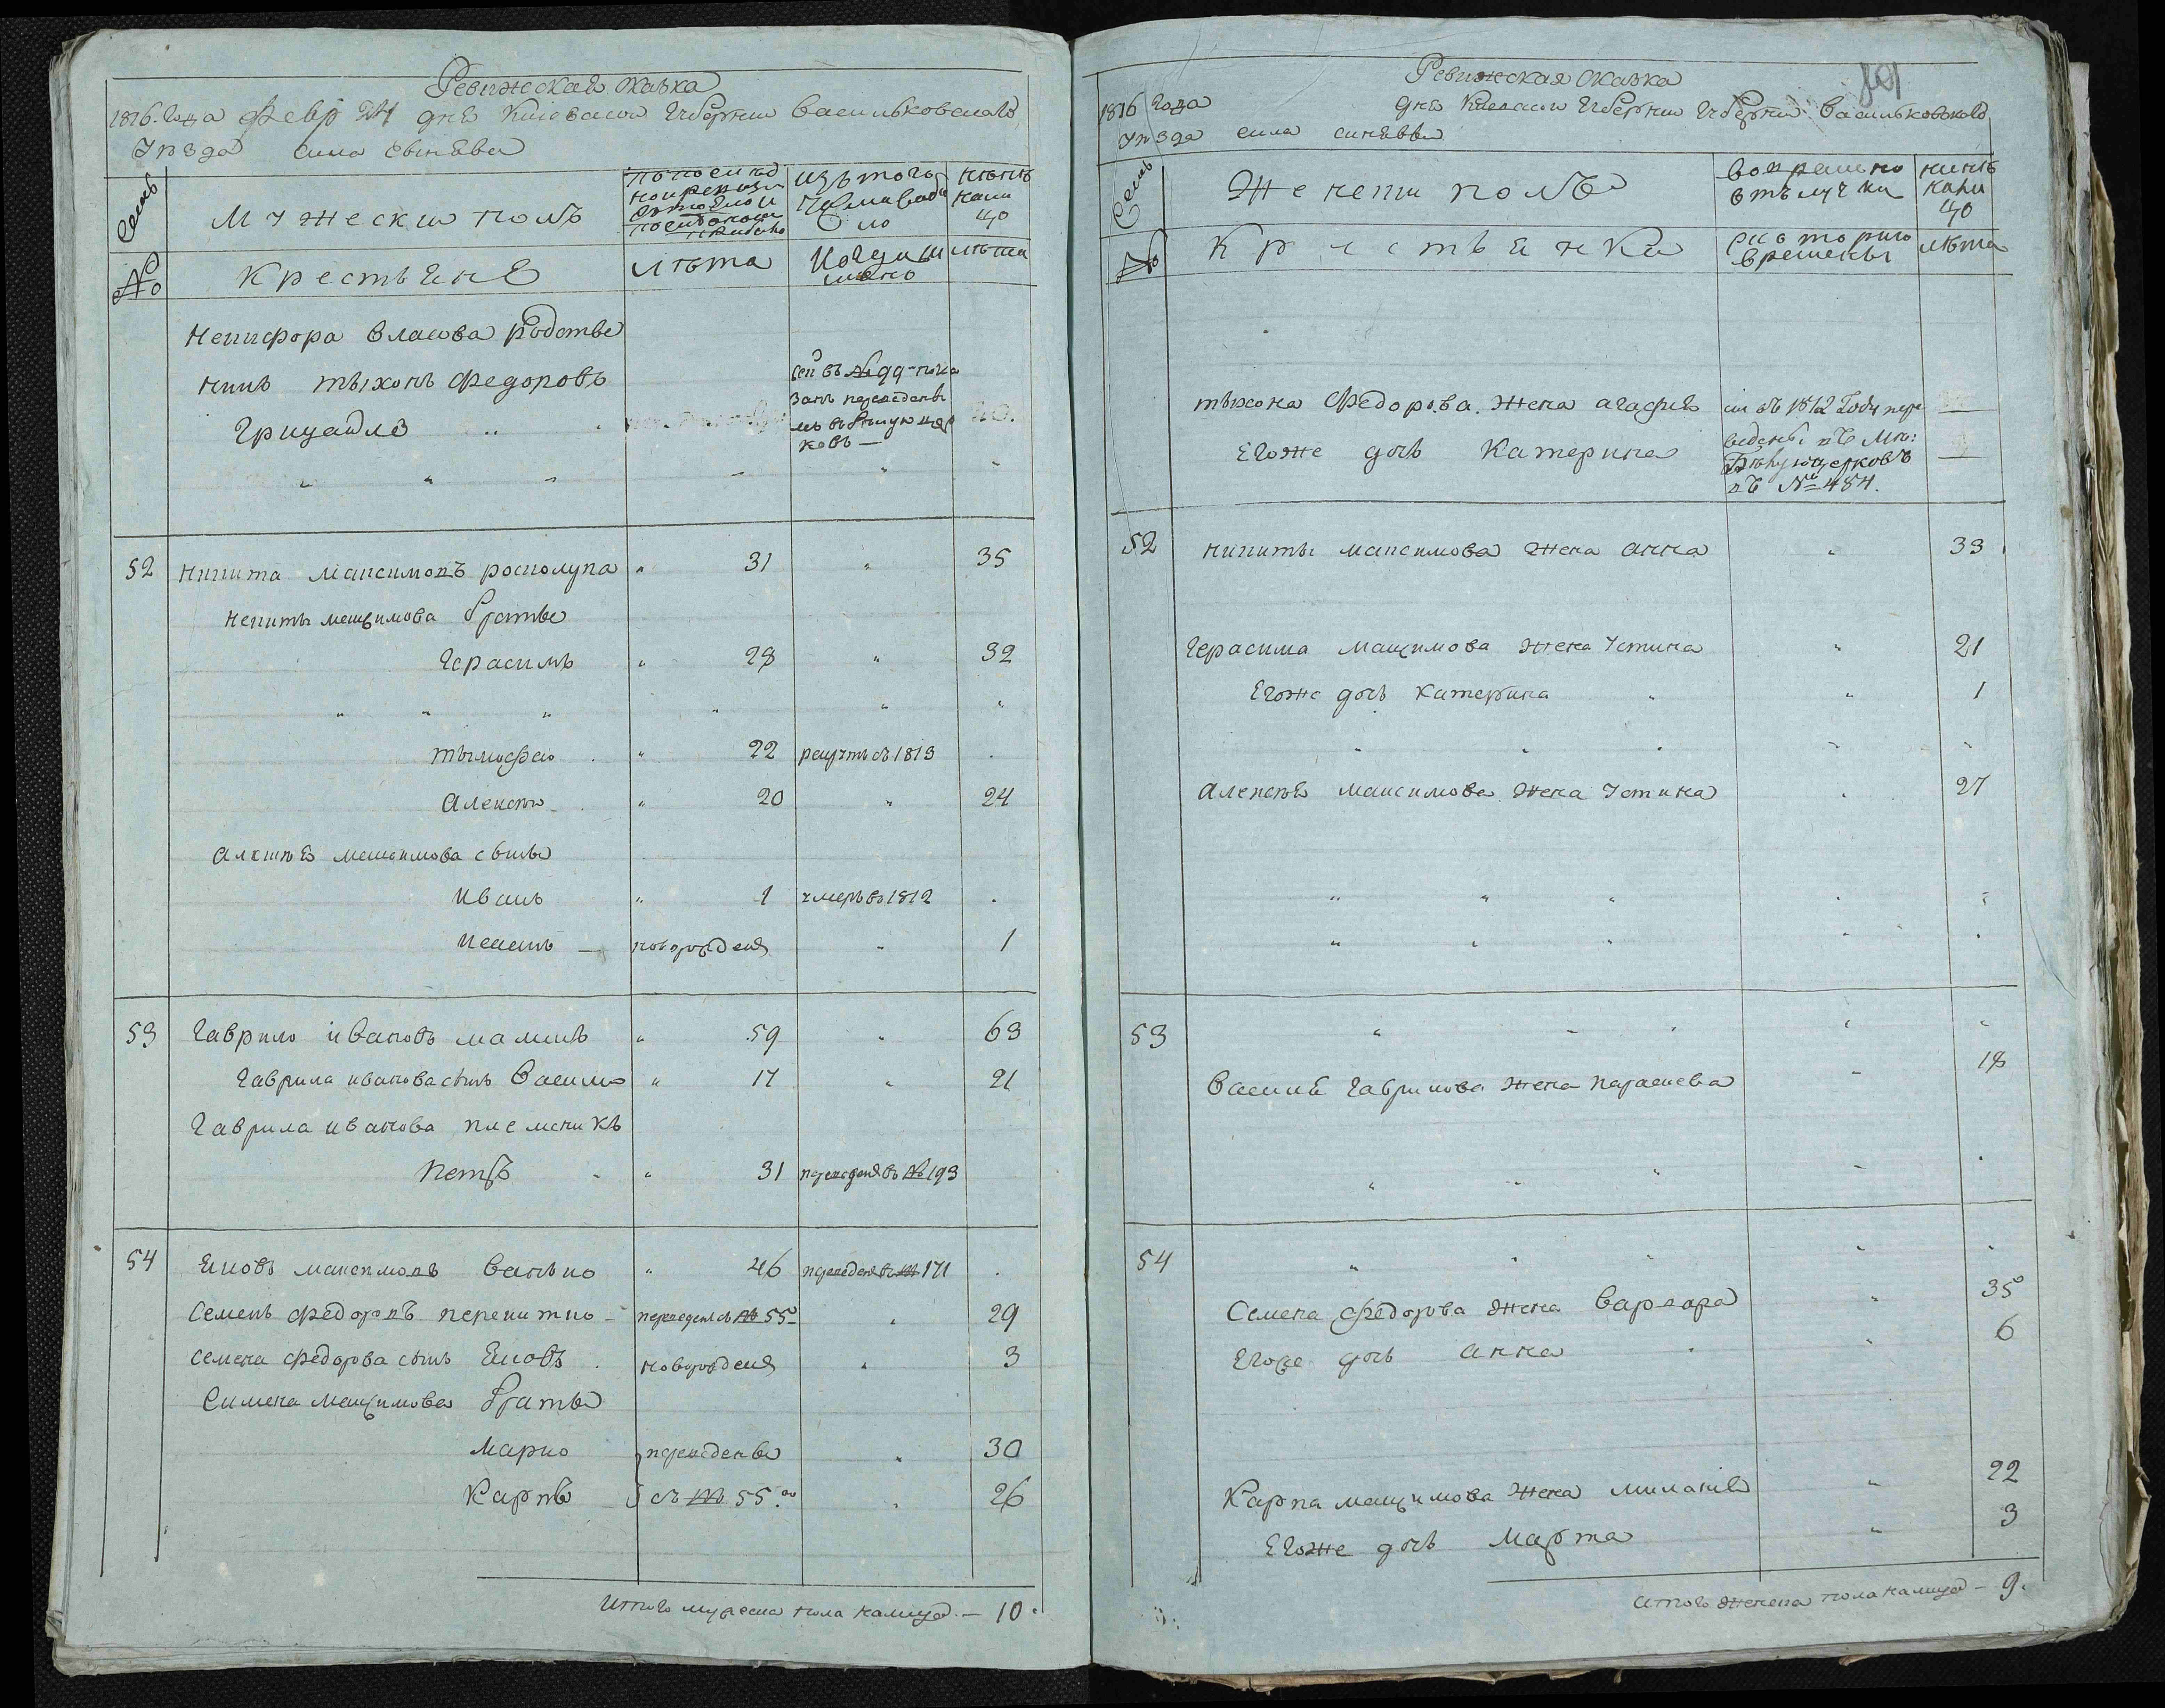 Ревижская сказка
1816. года февр дня Киевской Губернии васильковскаго
уезда села
Семьи
Мужески полъ
изъ того числа выбы
ло
ныне
на ли
цо
№
Крестьяне
лѣта
Когда им
ѣнно
лѣта
Никифора власова родстве
никъ тыхонъ федоровъ
Грицайло
сей въ № 99 пока
занъ переведены
мъ въ белую цер
ковъ —
52 никита максимовъ росполупа " 31 " 35
никиты максимова братъя
Герасимъ " 28 " 32
тымофей " 22 рекрутъ въ 1813
алексѣй " 20 " 24
алексѣя максимова сынъя
иванъ " 1 умеръ въ 1812
новорожденъ " 1
53 Гаврило ивановъ " 59 " 63
Гаврила иванова сынъ василь " 17 " 21
Гаврила иванова племеникъ
петръ " 31 переведенъ въ № 193
54 Яковъ максимовъ " 46 переведенъ въ № 171
Семенъ федоровъ перекитко переведенъ съ № 55 " 29
Семена федорова сынъ Яковъ новорожденъ " 3
Симена максимова братъя
Марко переведены " 30
Карпъ съ № 55. " 26
Итого мужеска пола налицо — 10.
Ревижская сказка
1816 года дня Киевской Губернии Губернии васильковскаго
уезда села синявы
Семьи
Женски полъ
во времено
отълучки
нинѣ
на ли
цо
№
Крестьянка
съ котораго
времены
лѣта
тыхона федорова жена агафия сии въ 1812 году пере
Егоже дочь Катерина ведены въ мѣс:
Бѣлую церковъ
въ № 484.
52 никиты максимова жена анна " 33
Герасима максимова жена устина " 21
Егоже дочь катерина " 1
алексѣя максимова жена устина 27
53
василя гаврилова жена параскева 18
54
Семена федорова жена варвара " 35
Егоже дочь анна " 6
Карпа максимова жена миланія " 22
Егоже дочь марта " 3
итого женска пола налицо — 9.